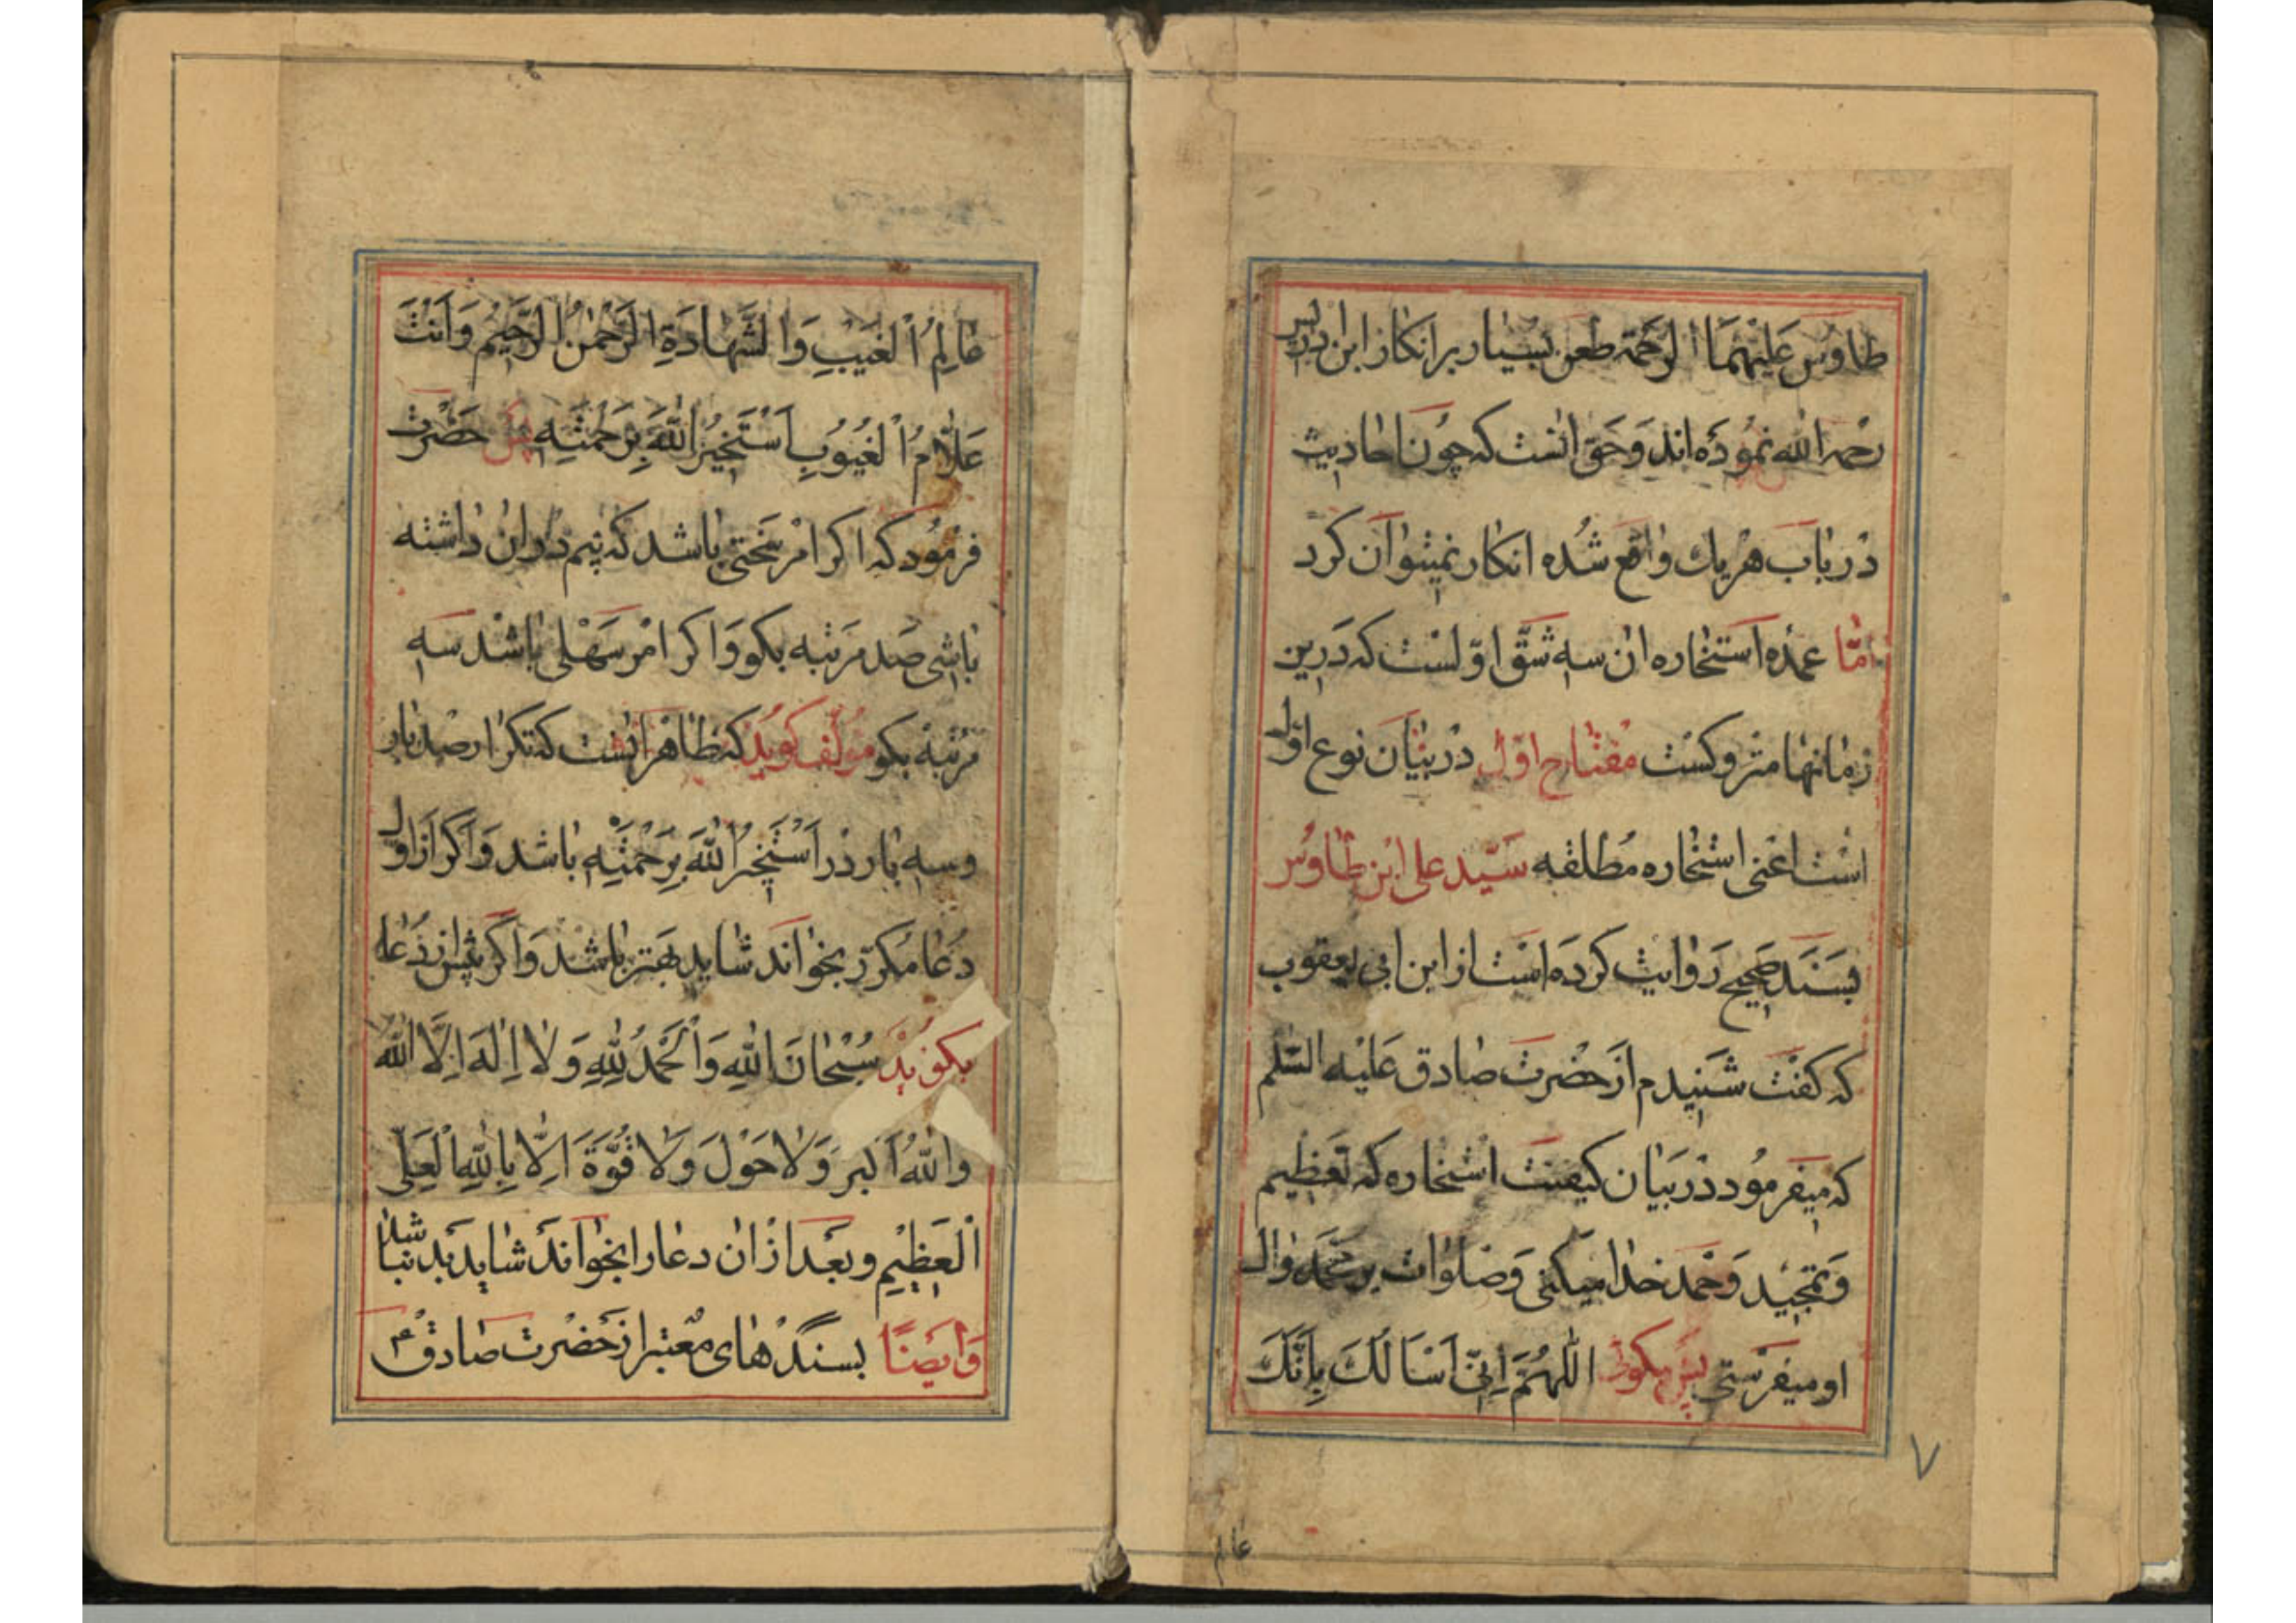 طاوس عَلَیْهِمَا الرَحمَة طعن بسیار بر انکار ابن ادریس
رحمه الله نموده اند وحق انست که چون احادیث
در باب هر یك واقع شده انکار نمیتوان کرد
امّا عمده استخاره ان سه شقّ اوّلست که درین
زمانها متروکست مفتاح اوّل در بیان نوع اول
است اعنی استخاره مطلقه سیّد علی ابن طاوس
بسند صحیح روایت کرده است از ابن ابی یعقوب
که کفت شنیدم از حضرت صادق علیه السّلم
که میفرمود در بیان کیفیت استخاره که تعظیم
و تمجید و حمد خدا میکنی و صلوات بر محمد وال
او میفرستی پس میکوئ اللّهُمَّ اِنّی اَسَألُكَ بِاَنَّكَ
۷
عالم
عَالِمُ الْغَیْبِ وَالشَّهَادَةِ الرَّحْمٰنُ الرَّحِیْمُ وَاَنْتَ
عَلَّامُ الْغُیُوبِ اَسْتَخیُر اللّٰهَ بِرَحْمَتِهِ پس حضرت
فرمود که اکر امر سختی باشد که بیم در ان داشته
باشی صد مرتبه بکو و اکر امر سهلی باشد سه
مرتبه بکو مؤلف کوید که ظاهر اینست که تکرار صد بار
و سه بار در اَسْتَخیُر اللّٰهَ بِرَحْمَتِهِ باشد و اکر از اول
دعا مکرّر بخواند شاید بهتر باشد و اکر پیش از دعا
بکوید سُبْحَانَ اللّٰهِ وَالْحَمْدُ لِلّٰهِ وَلا اِلٰهَ اِلَّا اللّٰهُ
وَاللّٰهُ اَکبر وَلا حَوْلَ وَلا قُوَّةَ اِلّا بِاللّٰهِ الْعَلِیِّ
الْعَظِیْمِ و بعد از ان دعا را بخواند شاید بد نباشد
وَ ایضًا بسندهای معتبر از حضرت صادق ۴